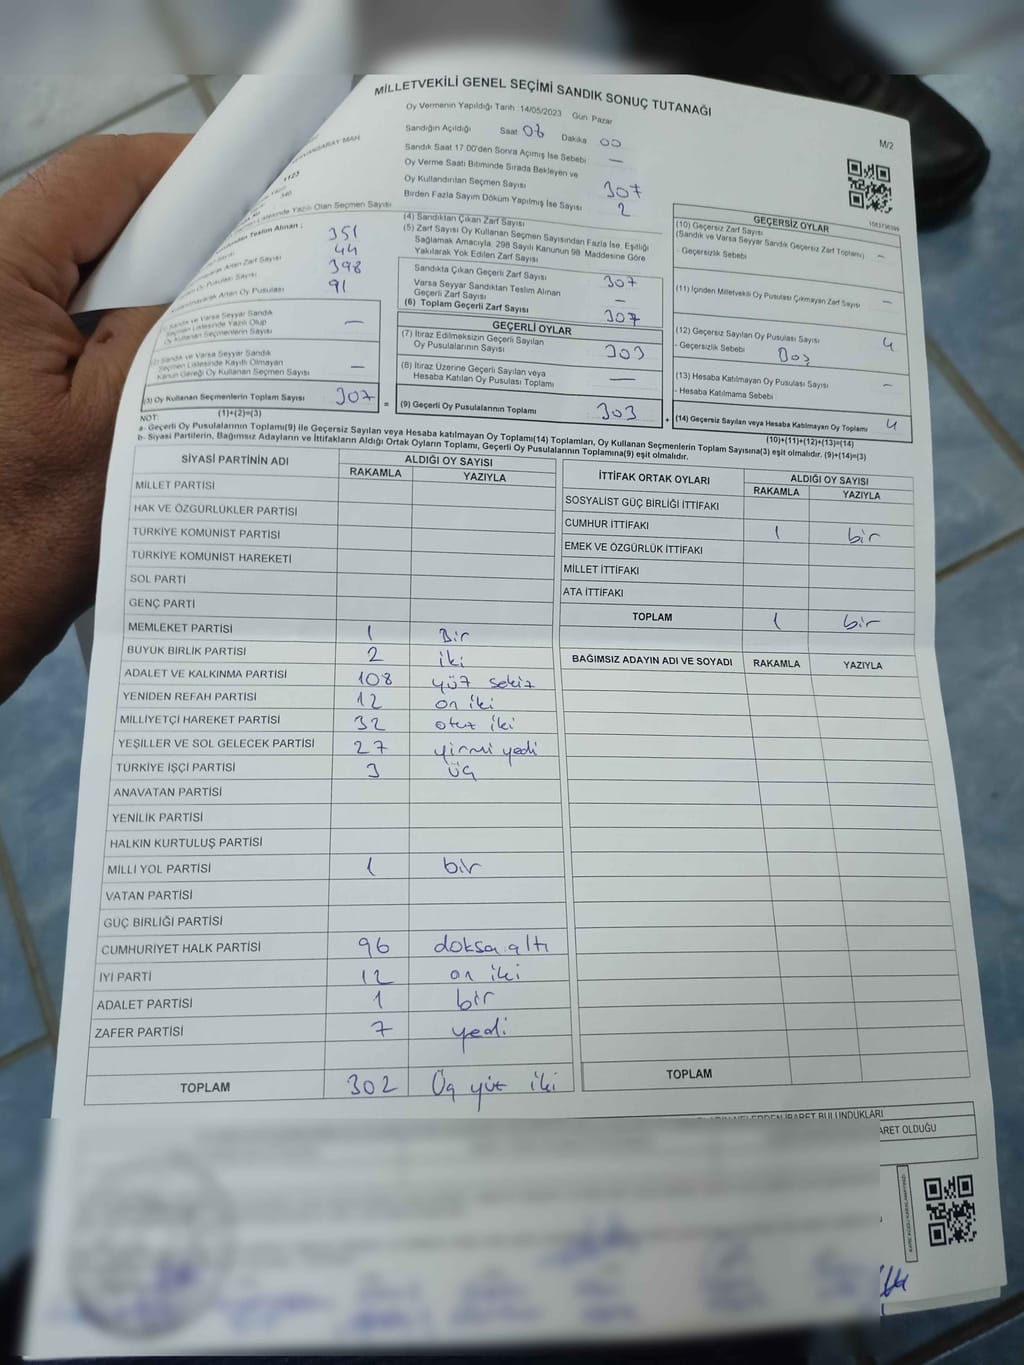 MİLLETVEKİLİ GENEL SEÇİMİ SANDIK SONUÇ TUTANAĞI
Oy Vermenin Yapıldığı Tarih : 14/05/2023 Gün Pazar
M/2
Sandığın Açıldığı Saat 08 Dakika 00
Sandık Saat 17 00'den Sonra Açımış İse Sebebi —
Oy Verme Saati Bitiminde Sırada Bekleyen ve
Oy Kullandırılan Seçmen Sayısı 307
Birden Fazla Sayım Döküm Yapılmış İse Sayısı 2
MAH.
1123
Listesinde Yazılı Olan Seçmen Sayısı 351
Teslim Alınan :
Artan Zarf Sayısı 44
Pusulası Sayısı 398
Artan Oy Pusulası 91
(1) Sandık ve Varsa Seyyar Sandık
Seçmen Listesinde Yazılı Olup
Oy Kullanan Seçmenlerin Sayısı —
(2) Sandık ve Varsa Seyyar Sandık
Seçmen Listesinde Kayıtlı Olmayan
Kanun Gereği Oy Kullanan Seçmen Sayısı —
(3) Oy Kullanan Seçmenlerin Toplam Sayısı 307
(1)+(2)=(3)
(4) Sandıktan Çıkan Zarf Sayısı
(5) Zarf Sayısı Oy Kullanan Seçmen Sayısından Fazla İse, Eşitliği
Sağlamak Amacıyla, 298 Sayılı Kanunun 98. Maddesine Göre
Yakılarak Yok Edilen Zarf Sayısı
Sandıkta Çıkan Geçerli Zarf Sayısı 307
Varsa Seyyar Sandıktan Teslim Alınan
Geçerli Zarf Sayısı —
(6) Toplam Geçerli Zarf Sayısı 307
GEÇERLİ OYLAR
(7) İtiraz Edilmeksizin Geçerli Sayılan
Oy Pusulalarının Sayısı 303
(8) İtiraz Üzerine Geçerli Sayılan veya
Hesaba Katılan Oy Pusulası Toplamı —
= (9) Geçerli Oy Pusulalarının Toplamı 303 +
GEÇERSİZ OYLAR
(10) Geçersiz Zarf Sayısı
(Sandık ve Varsa Seyyar Sandık Geçersiz Zarf Toplamı) —
- Geçersizlik Sebebi
(11) İçinden Milletvekili Oy Pusulası Çıkmayan Zarf Sayısı —
(12) Geçersiz Sayılan Oy Pusulası Sayısı 4
- Geçersizlik Sebebi Boş
(13) Hesaba Katılmayan Oy Pusulası Sayısı —
- Hesaba Katılmama Sebebi
(14) Geçersiz Sayılan veya Hesaba Katılmayan Oy Toplamı 4
(10)+(11)+(12)+(13)=(14)
NOT:
a- Geçerli Oy Pusulaların Toplamı(9) ile Geçersiz Sayılan veya Hesaba katılmayan Oy Toplamı(14) Toplamları, Oy Kullanan Seçmenlerin Toplam Sayısına(3) eşit olmalıdır. (9)+(14)=(3)
b- Siyasi Partilerin, Bağımsız Adayların ve İttifakların Aldığı Ortak Oyların Toplamı, Geçerli Oy Pusulalarının Toplamına(9) eşit olmalıdır.
SİYASİ PARTİNİN ADI ALDIĞI OY SAYISI
RAKAMLA YAZIYLA
MİLLET PARTİSİ
HAK VE ÖZGÜRLÜKLER PARTİSİ
TÜRKİYE KOMÜNİST PARTİSİ
TÜRKİYE KOMÜNİST HAREKETİ
SOL PARTİ
GENÇ PARTİ
MEMLEKET PARTİSİ 1 Bir
BÜYÜK BİRLİK PARTİSİ 2 iki
ADALET VE KALKINMA PARTİSİ 108 yüz sekiz
YENİDEN REFAH PARTİSİ 12 on iki
MİLLİYETÇİ HAREKET PARTİSİ 32 otuz iki
YEŞİLLER VE SOL GELECEK PARTİSİ 27 yirmi yedi
TÜRKİYE İŞÇİ PARTİSİ 3 üç
ANAVATAN PARTİSİ
YENİLİK PARTİSİ
HALKIN KURTULUŞ PARTİSİ
MİLLİ YOL PARTİSİ 1 bir
VATAN PARTİSİ
GÜÇ BİRLİĞİ PARTİSİ
CUMHURİYET HALK PARTİSİ 96 doksa altı
İYİ PARTİ 12 on iki
ADALET PARTİSİ 1 bir
ZAFER PARTİSİ 7 yedi
TOPLAM 302 Üç yüz iki
İTTİFAK ORTAK OYLARI ALDIĞI OY SAYISI
RAKAMLA YAZIYLA
SOSYALİST GÜÇ BİRLİĞİ İTTİFAKI
CUMHUR İTTİFAKI 1 bir
EMEK VE ÖZGÜRLÜK İTTİFAKI
MİLLET İTTİFAKI
ATA İTTİFAKI
TOPLAM 1 bir
BAĞIMSIZ ADAYIN ADI VE SOYADI RAKAMLA YAZIYLA
TOPLAM
İBARET BULUNDUKLARI
ARET OLDUĞU